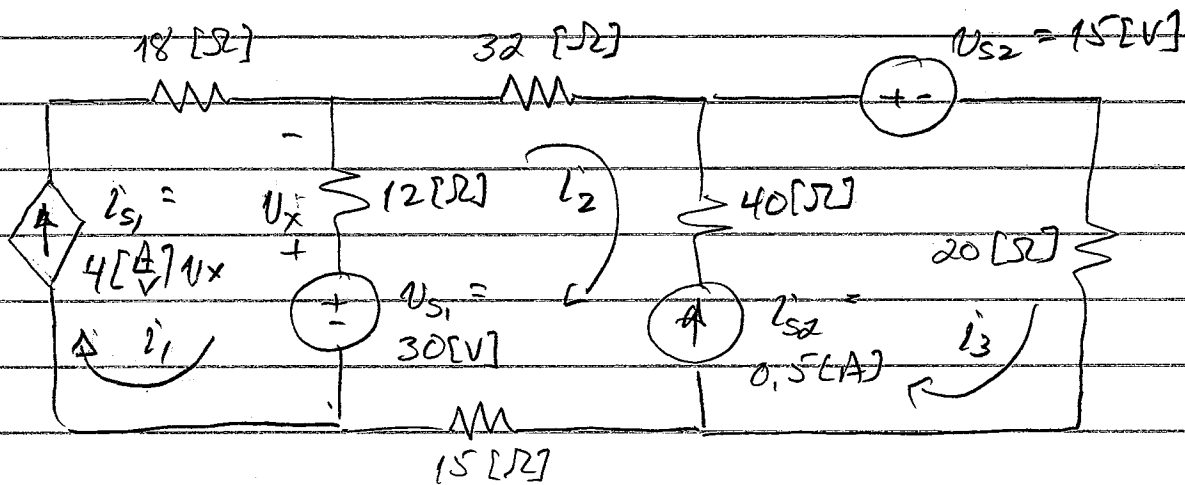 18 [Ω]
32 [Ω]
v_s2 = 15[V]
+ -
-
i_s1 =
4[A/V] v_x
v_x
+
12[Ω]
i_2
40[Ω]
20[Ω]
+
-
v_s1 =
30[V]
i_s2 =
0,5[A]
i_1
i_3
15 [Ω]